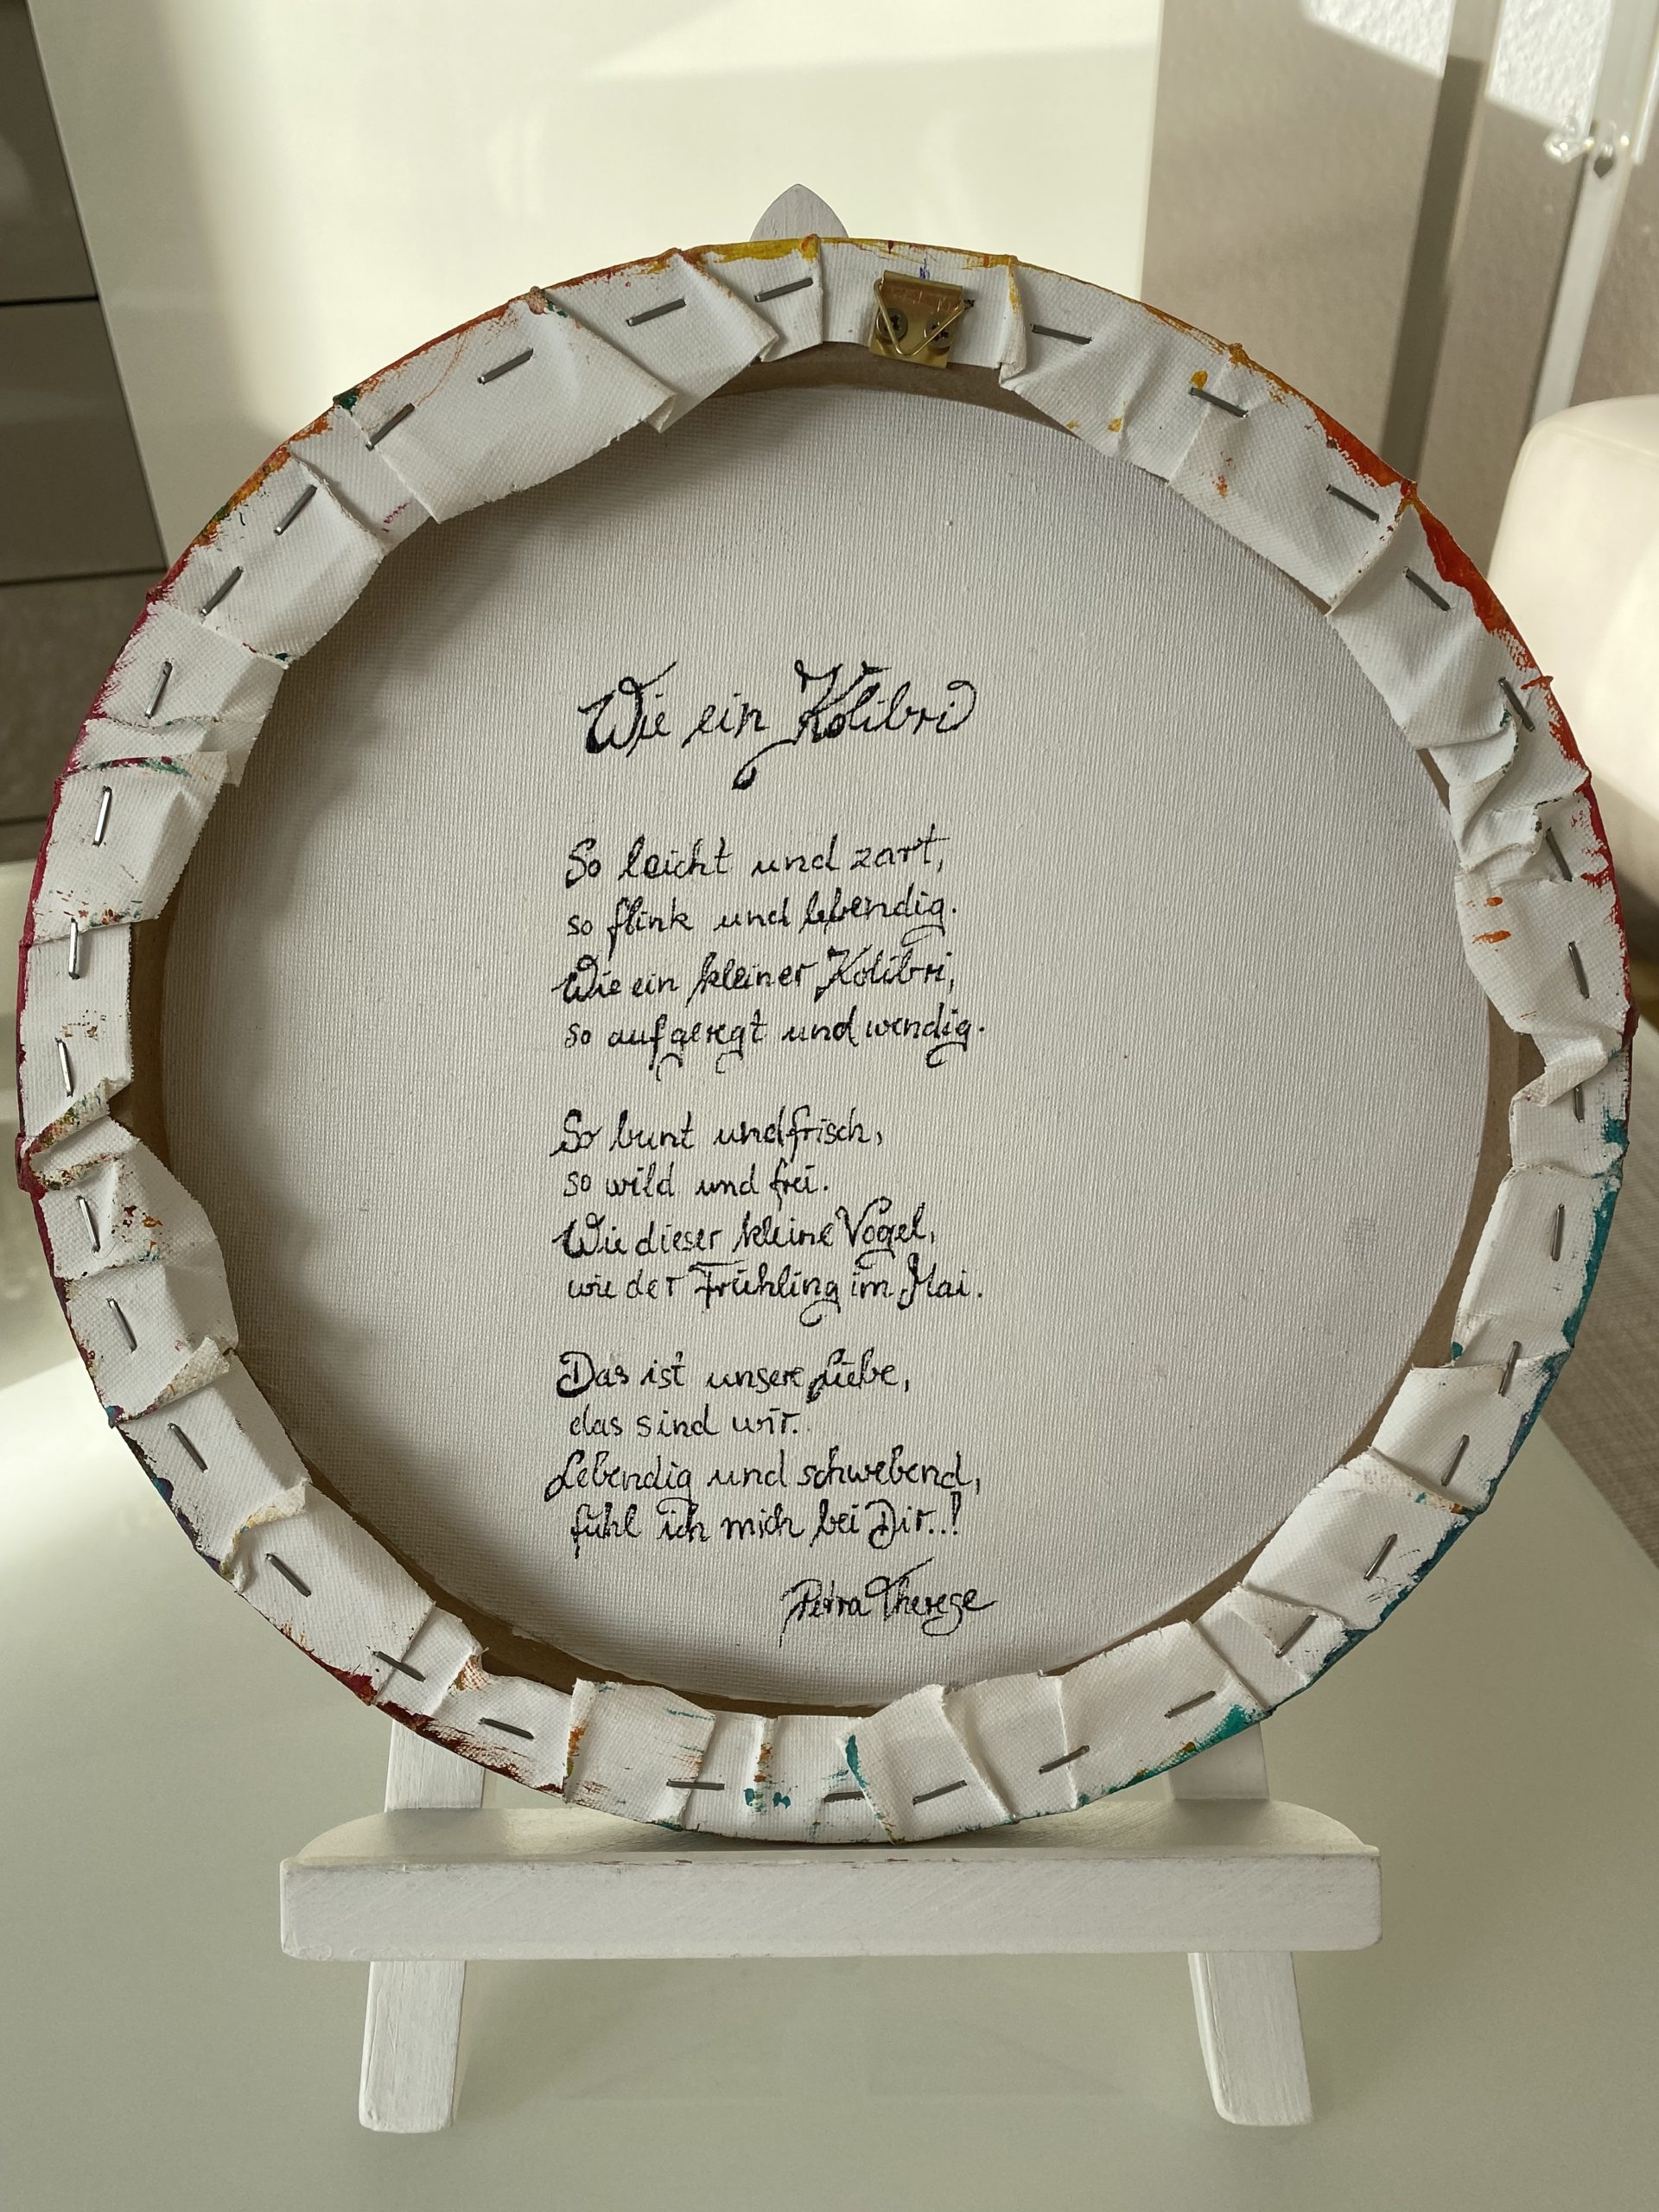 Wie ein Kolibri
So leicht und zart,
so flink und lebendig.
Wie ein kleiner Kolibri,
so aufgeregt und wendig.
So bunt und frisch,
so wild und frei.
Wie dieser kleine Vogel,
wie der Frühling im Mai.
Das ist unsere Liebe,
das sind wir.
Lebendig und schwebend,
fühl ich mich bei Dir..!
Petra Therese